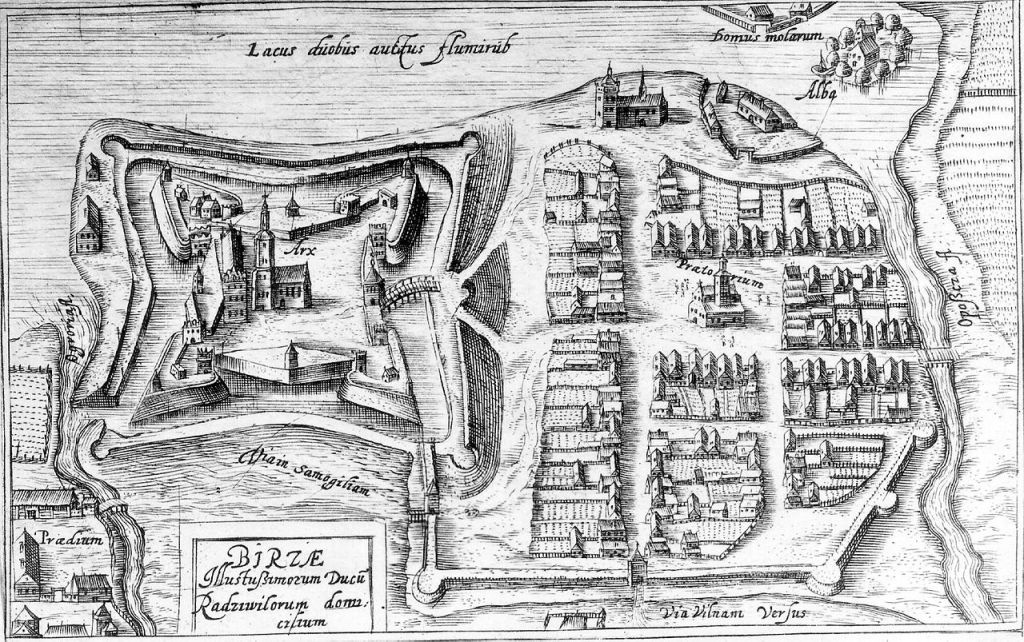 Lacus duobus auctus fluminib
Domus molarum
Alba
Arx
Prætorium
Via in Samogitiam
Prædium
BIRZÆ
Illustrissimorum Ducū
Radziwilorum domi:
cilium
Via Vilnam Versus